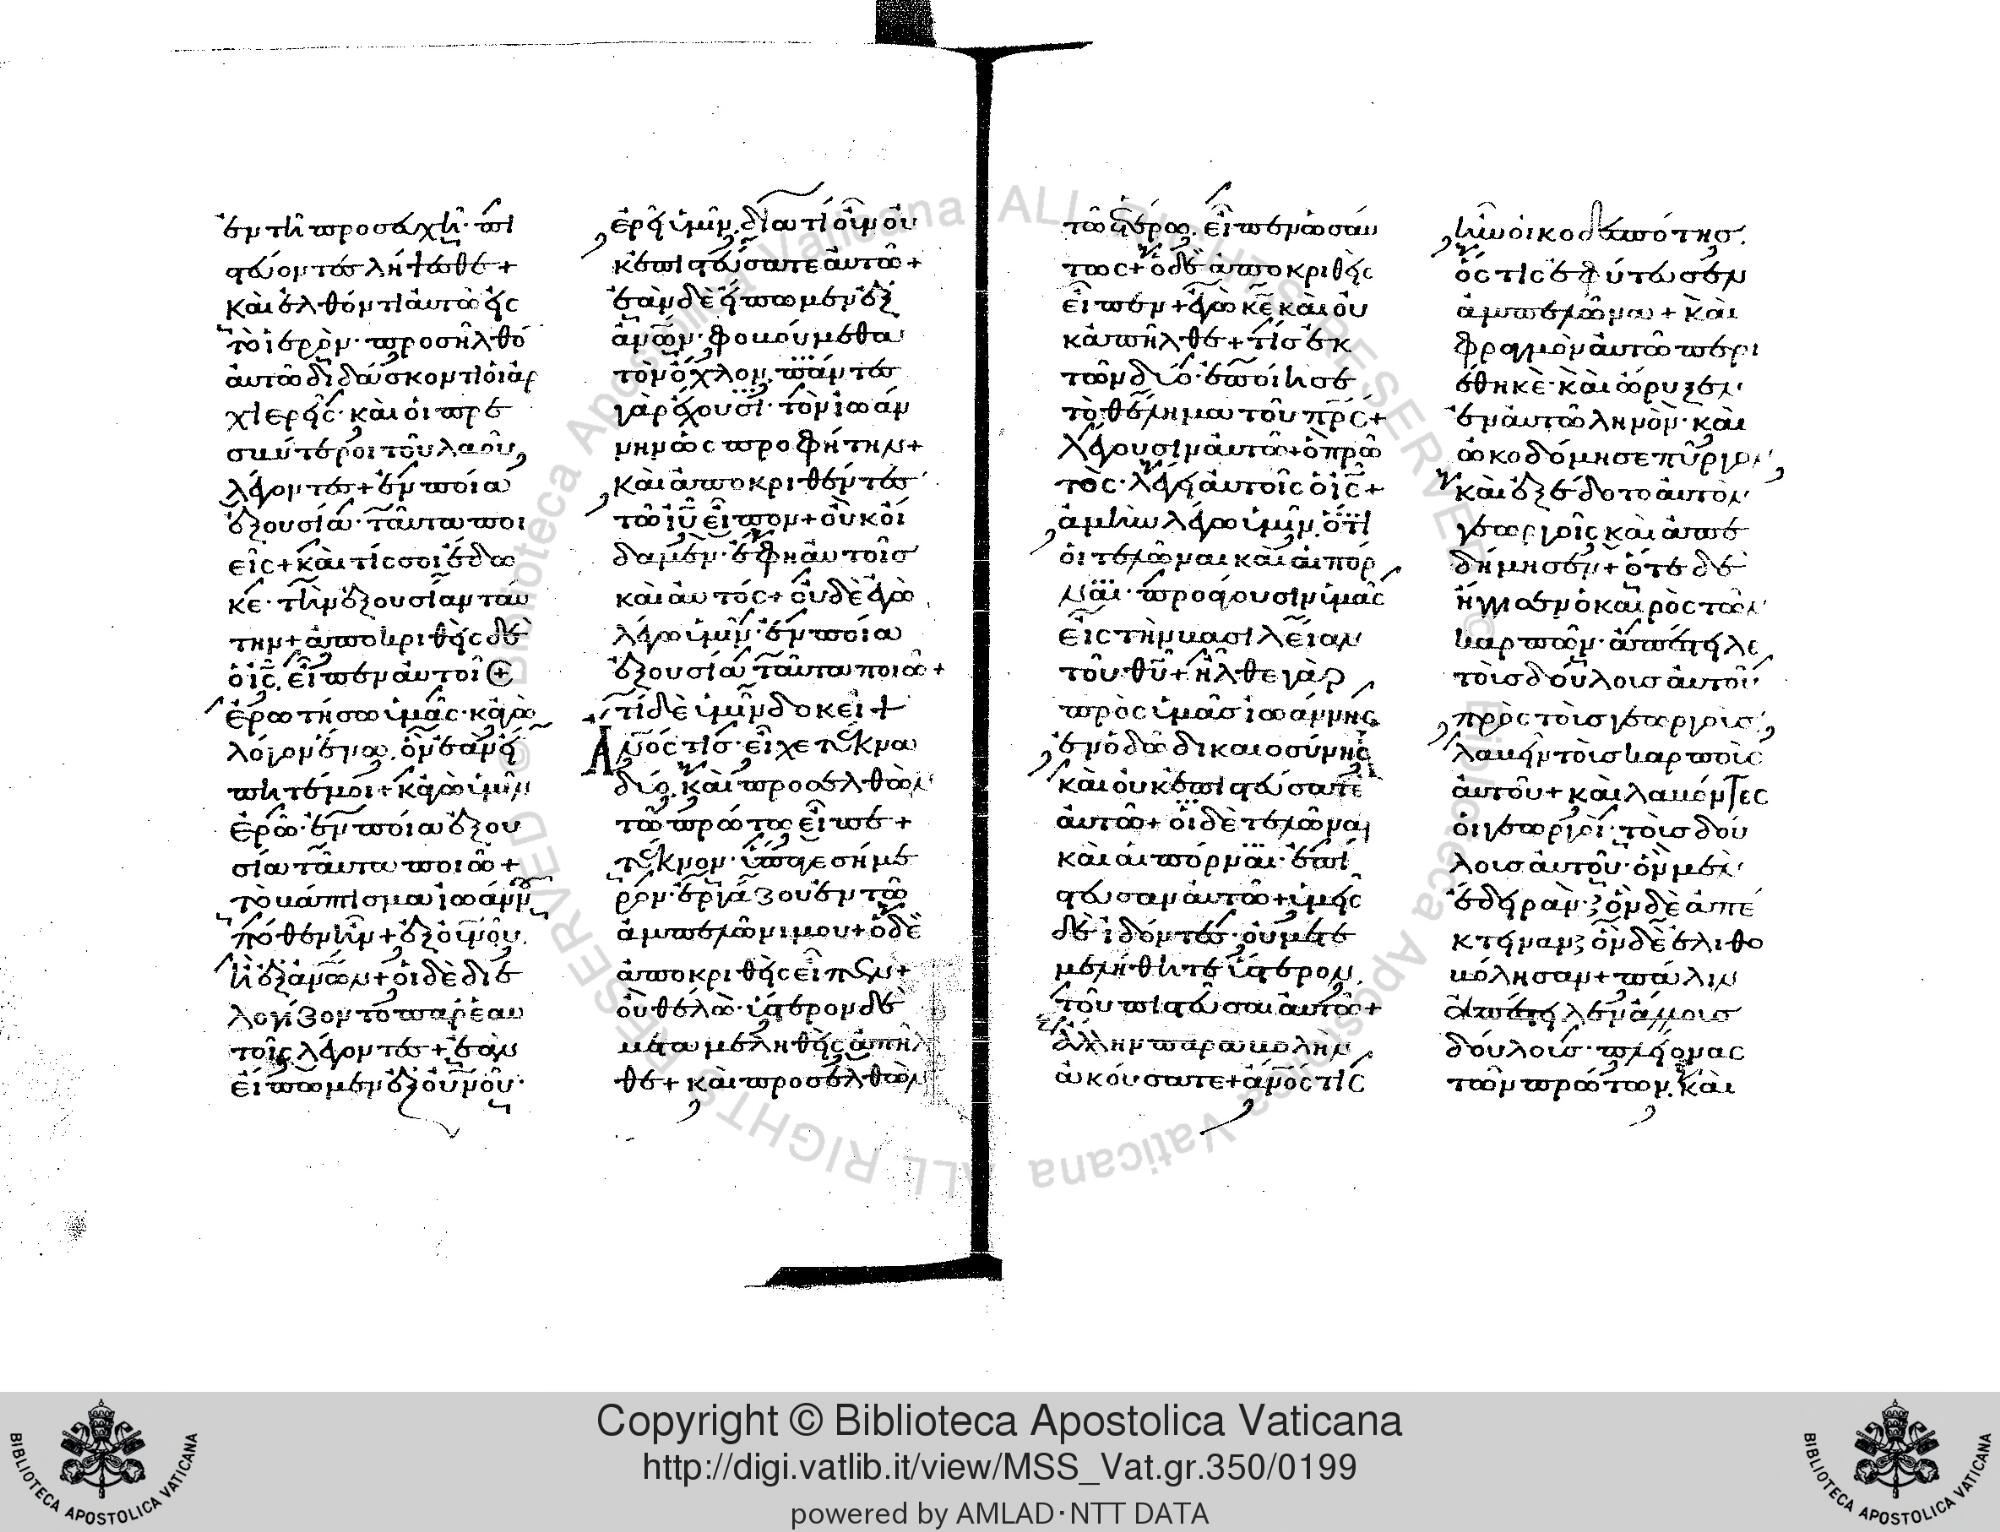 ἐν τῆ προσευχῆ· πι
στεύοντες λήψεσθε +
καὶ ἐλθόντι αὐτῶ εἰς
τὸ ἱερὸν· προσῆλθο̅
αὐτῶ διδάσκοντι οἱ ἀρ
χιερεῖς· καὶ οἱ πρε
σβύτεροι τοῦ λαοῦ,
λέγοντες + ἐν ποία
ἐξουσία· ταῦτα ποι
εῖς + καὶ τίς σοι ἔδω
κε· τὴν ἐξουσίαν ταύ
την + ἀποκριθεὶς δὲ
ὁ ι̅ς̅, εἶπεν αὐτοῖς +
ἐρωτήσω ὑμᾶς· κἀγὼ
λόγον ἕνα, ὃν ἐὰν εἴ
πητέ μοι + κἀγὼ ὑμῖν
ἐρῶ· ἐν ποία ἐξου
σία ταῦτα ποιῶ +
τὸ βάπτισμα ἰωάννου
πόθεν ἦν + ἐξ ο̅υ̅ν̅ο̅υ̅,
ἢ ἐξ α̅ν̅ω̅ν̅ + οἱ δὲ διε
λογίζοντο παρ' ἑαυ
τοῖς λέγοντες + ἐὰν
εἴπωμεν ἐξ ο̅υ̅ν̅ο̅υ̅·
ἐρεῖ ὑμῖν, διατί οὖν οὐ
κ ἐπιστεύσατε αὐτῶ +
ἐὰν δὲ εἴπωμεν ἐξ
α̅ν̅ω̅ν̅· φοβούμεθα
τὸν ὄχλον, πάντες
γὰρ ἔχουσι· τὸν ἰωάν
νην ὡς προφήτην +
καὶ ἀποκριθέντες
τῶ ι̅υ̅ εἶπον + οὐκ οἴ
δαμεν· ἔφη αὐτοῖς
καὶ αὐτός + οὐδὲ ἐγὼ
λέγω ὑμῖν· ἐν ποία
ἐξουσία ταῦτα ποιῶ +
τί δὲ ὑμῖν δοκεῖ +
Α̅ν̅ο̅ς̅ τίς· εἶχε τέκνα
δύο, καὶ προσελθὼν
τῶ πρώτω εἶπε +
τέκνον· ὕπαγε σήμε
ρον· ἐργάζου ἐν τῶ
ἀμπελῶνι μου + ὁ δὲ
ἀποκριθεὶς εἶπεν +
οὐ θέλω· ὕστερον δὲ
μεταμεληθεὶς ἀπῆλ
θε + καὶ προσελθὼν
τῶ ἑτέρω, εἶπεν ὡσαύ
τως + ὁ δὲ ἀποκριθεὶς
εἶπεν + ἐγὼ κ̅ε̅ καὶ οὐ
κ ἀπῆλθε + τίς ἐκ
τῶν δύο· ἐποίησε
τὸ θέλημα τοῦ π̅ρ̅ς̅ +
λέγουσιν αὐτῶ + ὁ πρῶ
τος· λέγει αὐτοῖς ὁ ι̅ς̅ +
ἀμὴν λέγω ὑμῖν, ὅτι
οἱ τελῶναι καὶ αἱ πόρ
ναι· προάγουσιν ὑμᾶς
εἰς τὴν βασιλείαν
τοῦ θ̅υ̅ + ἦλθε γὰρ
πρὸς ὑμᾶς ἰωάννης
ἐν ὁδῶ δικαιοσύνης
καὶ οὐκ ἐπιστεύσατε
αὐτῶ + οἱ δὲ τελῶναι
καὶ αἱ πόρναι· ἐπί
στευσαν αὐτῶ + ὑμεῖς
δὲ ἰδόντες· οὐ μετε
μελήθητε ὕστερον,
τοῦ πιστεῦσαι αὐτῶ +
ἄλλην παραβολὴν
ἀκούσατε + α̅ν̅ο̅ς̅ τίς
ἦν οἰκοδεσπότης.
ὅς τις ἐφύτευσεν
ἀμπελῶνα + καὶ
φραγμὸν αὐτῶ περι
έθηκε· καὶ ὤρυξεν
ἐν αὐτῶ ληνὸν· καὶ
ὠκοδόμησε πύργον,
καὶ ἐξέδοτο αὐτὸν
γεωργοῖς καὶ ἀπε
δήμησεν + ὅτε δὲ
ἤγγισεν ὁ καιρὸς τῶν
καρπῶν· ἀπέστειλε
τοὺς δούλους αὐτοῦ
πρὸς τοὺς γεωργοὺς,
λαβεῖν τοὺς καρποὺς
αὐτοῦ + καὶ λαβόντες
οἱ γεωργοὶ· τοὺς δού
λους αὐτοῦ· ὃν μὲν
ἔδειραν· ὃν δὲ ἀπέ
κτειναν ὃν δὲ ἐλιθο
βόλησαν + πάλιν
ἀπέστειλεν ἄλλους
δούλους· πλείονας
τῶν πρώτων, καὶ
Copyright © Biblioteca Apostolica Vaticana
http://digi.vatlib.it/view/MSS_Vat.gr.350/0199
powered by AMLAD·NTT DATA
BIBLIOTECA APOSTOLICA VATICANA
BIBLIOTECA APOSTOLICA VATICANA